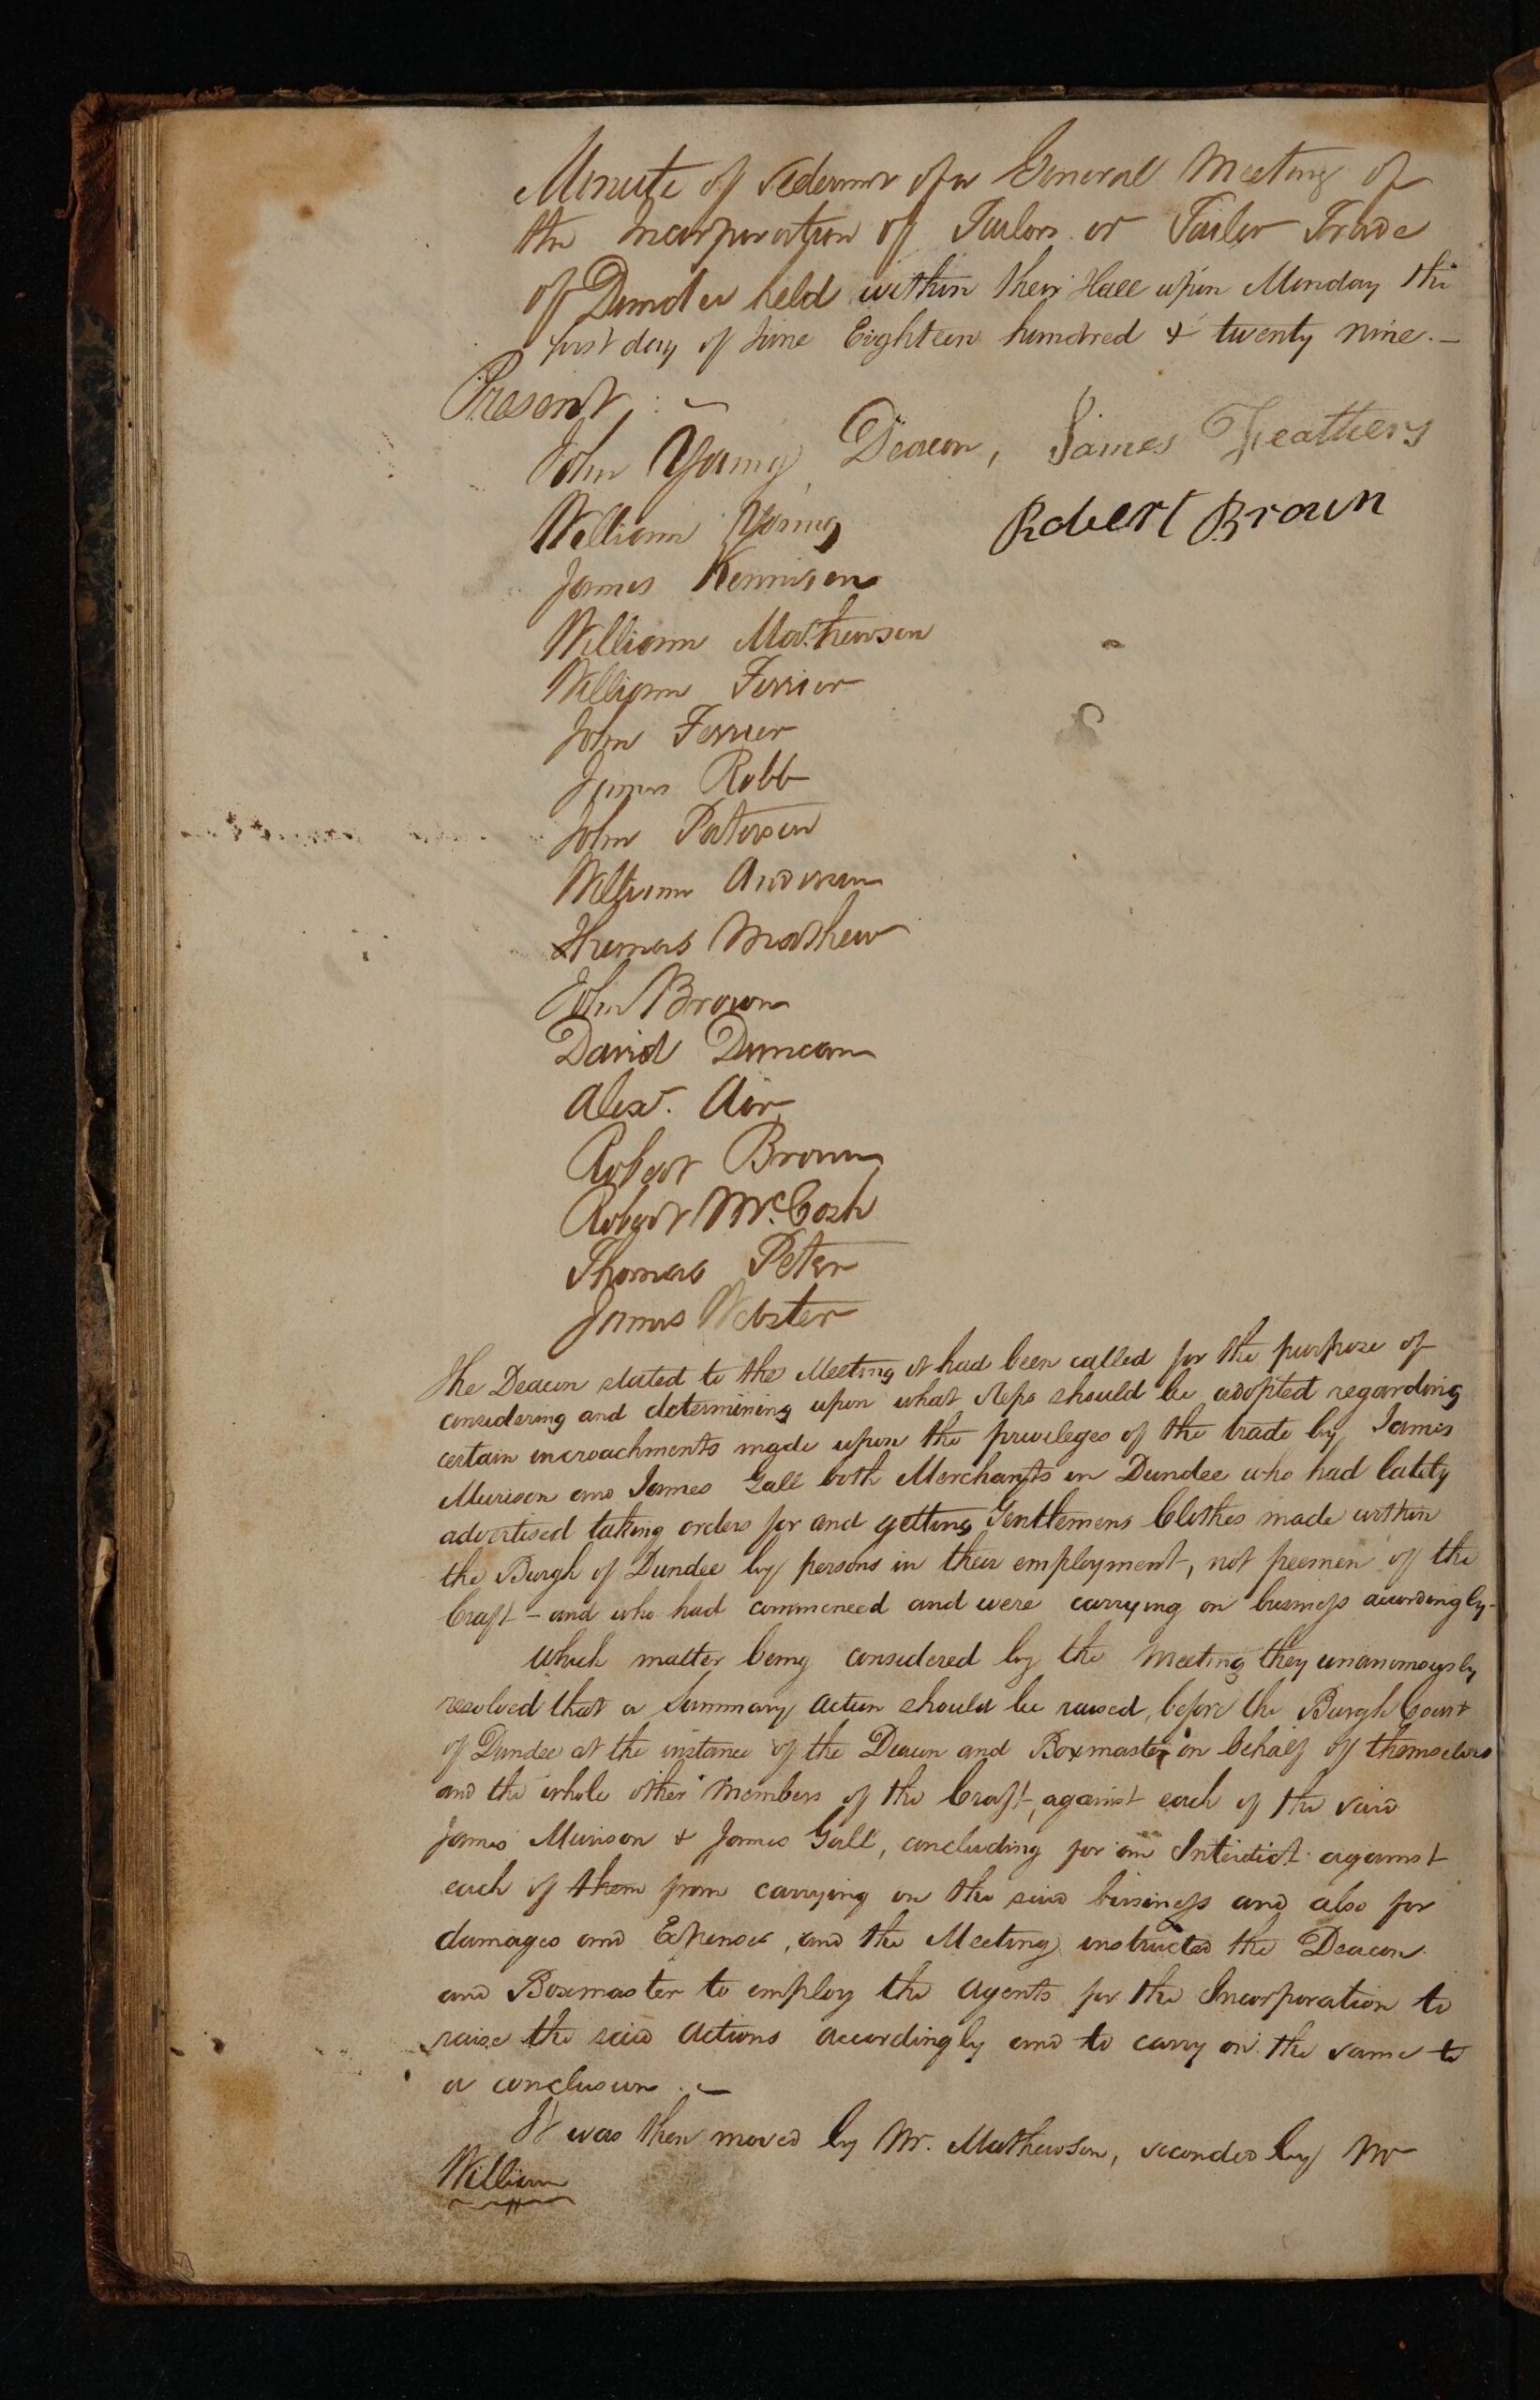 Minute of Sederunt of a General Meeting of
the Incorporation of Tailors or Tailor Trade
of Dundee held within their Hall upon Monday the
first day of June Eighteen hundred & twenty nine. —
Present, : —
John Young Deacon, James Feathers
William Young Robert Brown
James Kennison
William Mathewson
William Ferrier
John Ferrier
James Robb
John Paterson
William Anderson
Thomas Mathew
John Brown
David Duncan
Alexr. Air
Robert Brown
Robert McCosh
Thomas Peter
James Webster
The Deacon stated to the Meeting it had been called for the purpose of
considering and determining upon what steps should be adopted regarding
certain incroachments made upon the privileges of the trade by James
Murison and James Gall both Merchants in Dundee who had lately
advertised taking orders for and getting Gentlemens Clothes made within
the Burgh of Dundee by persons in their employment, not freemen of the
Craft – and who had commenced and were carrying on business accordingly –
Which matter being considered by the Meeting they unanimously
resolved that a Summary Action should be raised, before the Burgh Court
of Dundee at the instance of the Deacon and Boxmaster on behalf of themselves
and the whole other Members of the Craft, against each of the said
James Murison & James Gall, concluding for an Interdict against
each of them from carrying on the said business and also for
damages and Expenses, and the Meeting instructed the Deacon
and Boxmaster to employ the Agents for the Incorporation to
raise the said Actions accordingly and to carry on the same to
a conclusion. —
It was then moved by Mr. Mathewson, seconded by Mr
William